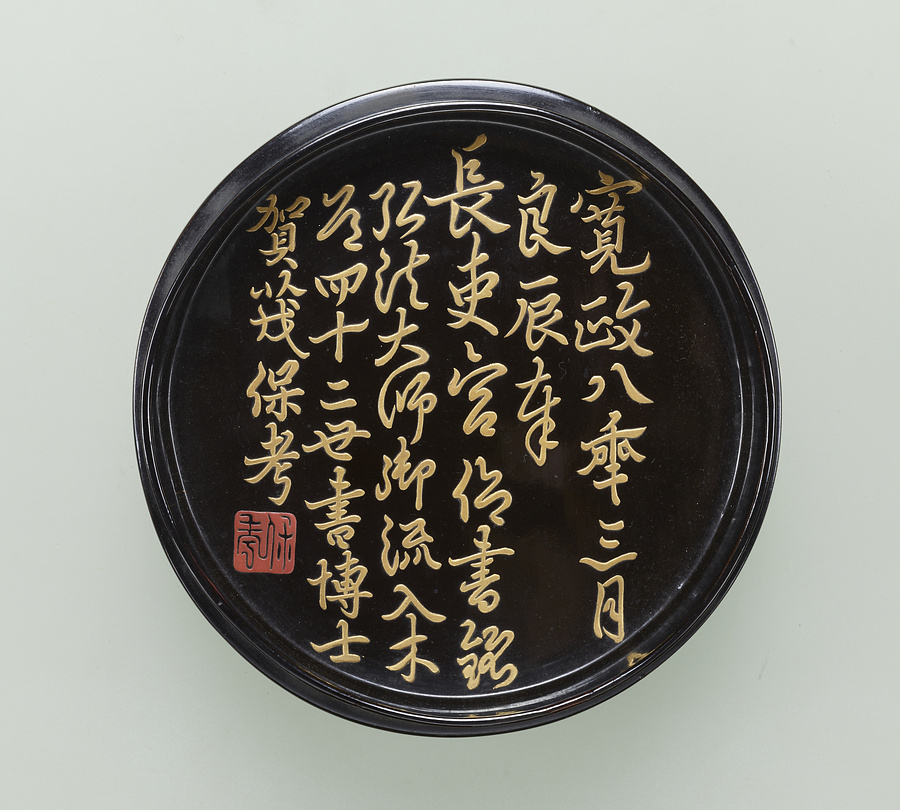 寛政八秊三月
良辰奉
長吏宮仰書銘
弘法大師御流入木
道四十二世書博士
賀茂保考
保考